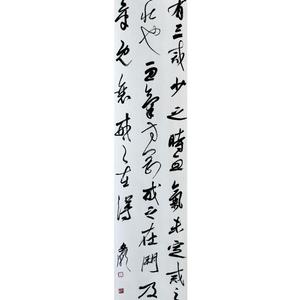 有三戒少之時血氣未定戒之
壯也血氣方剛戒之在鬥及
氣既衰戒之在得